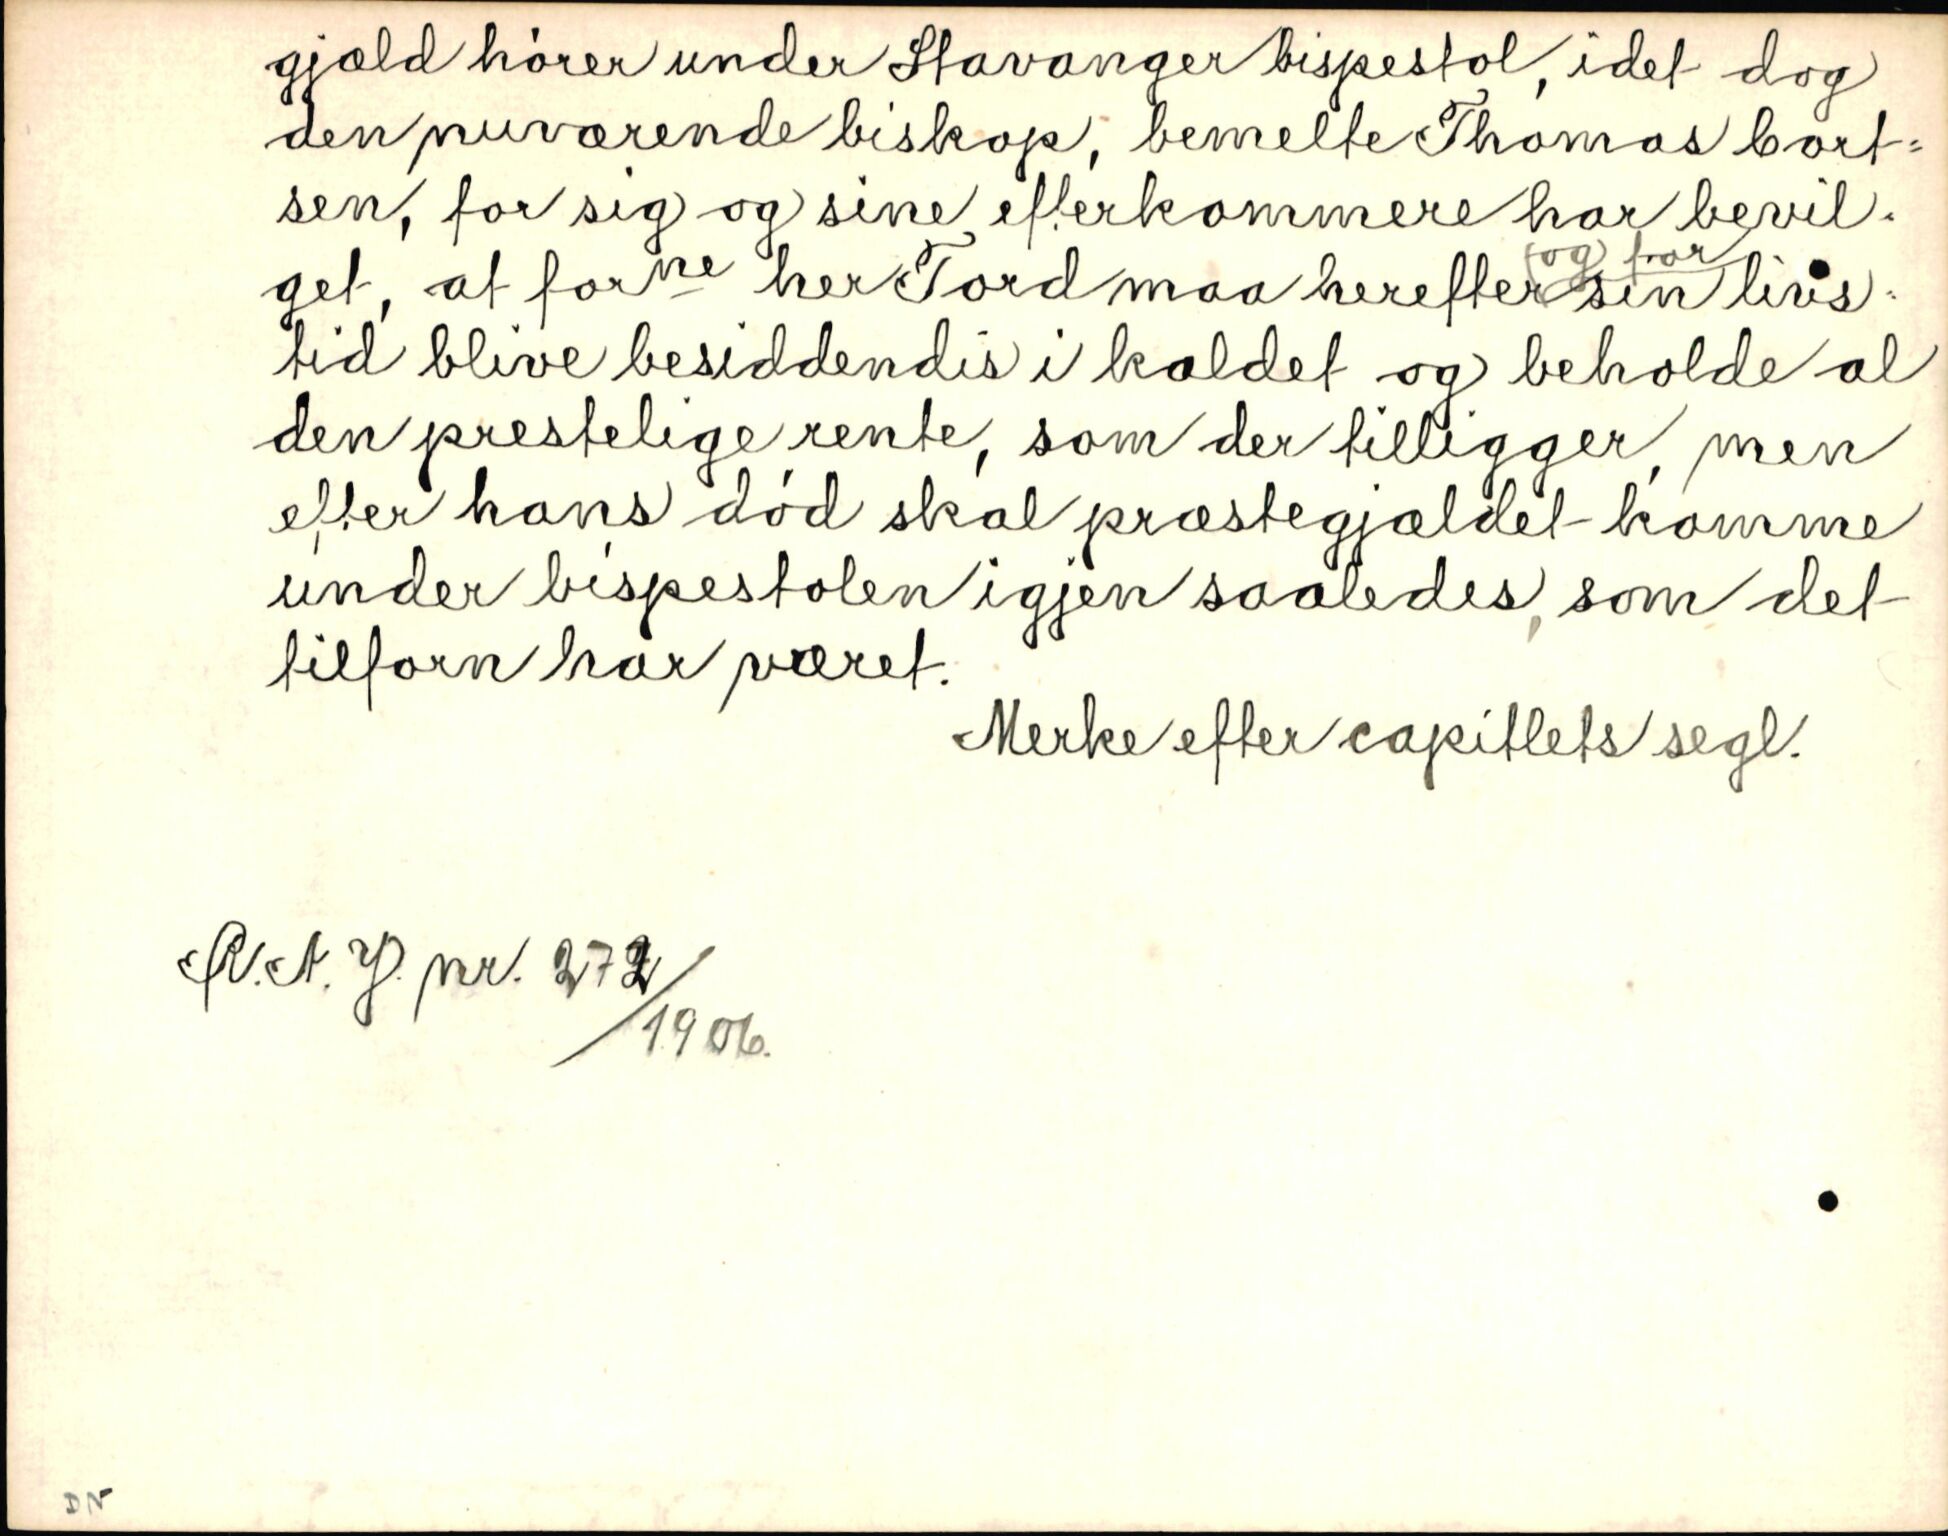 gjæld hører under Stavanger bispestol, idet dog
den nuværende biskop, bemelte Thomas Cort-
sen, for sig og sine efterkommere har bevil-
get, at forne her Tord maa herefter (og for) sin livs-
tid blive besiddendis i kaldet og beholde al
den prestelige rente, som der tilligger, men
efter hans død skal præstegjældet komme
under bispestolen igjen saaledes, som det
tilforn har været.
Merke efter capitlets segl.
R. A. J. nr. 272/1906.
DN